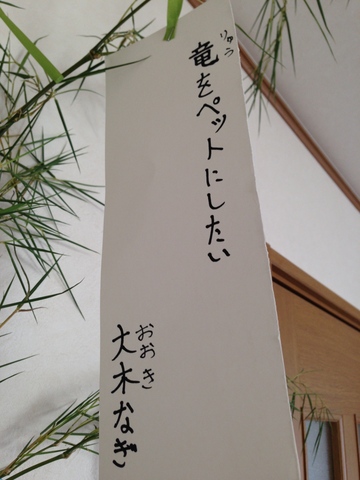 竜をペットにしたい
りゅう
大木なぎ
おおき